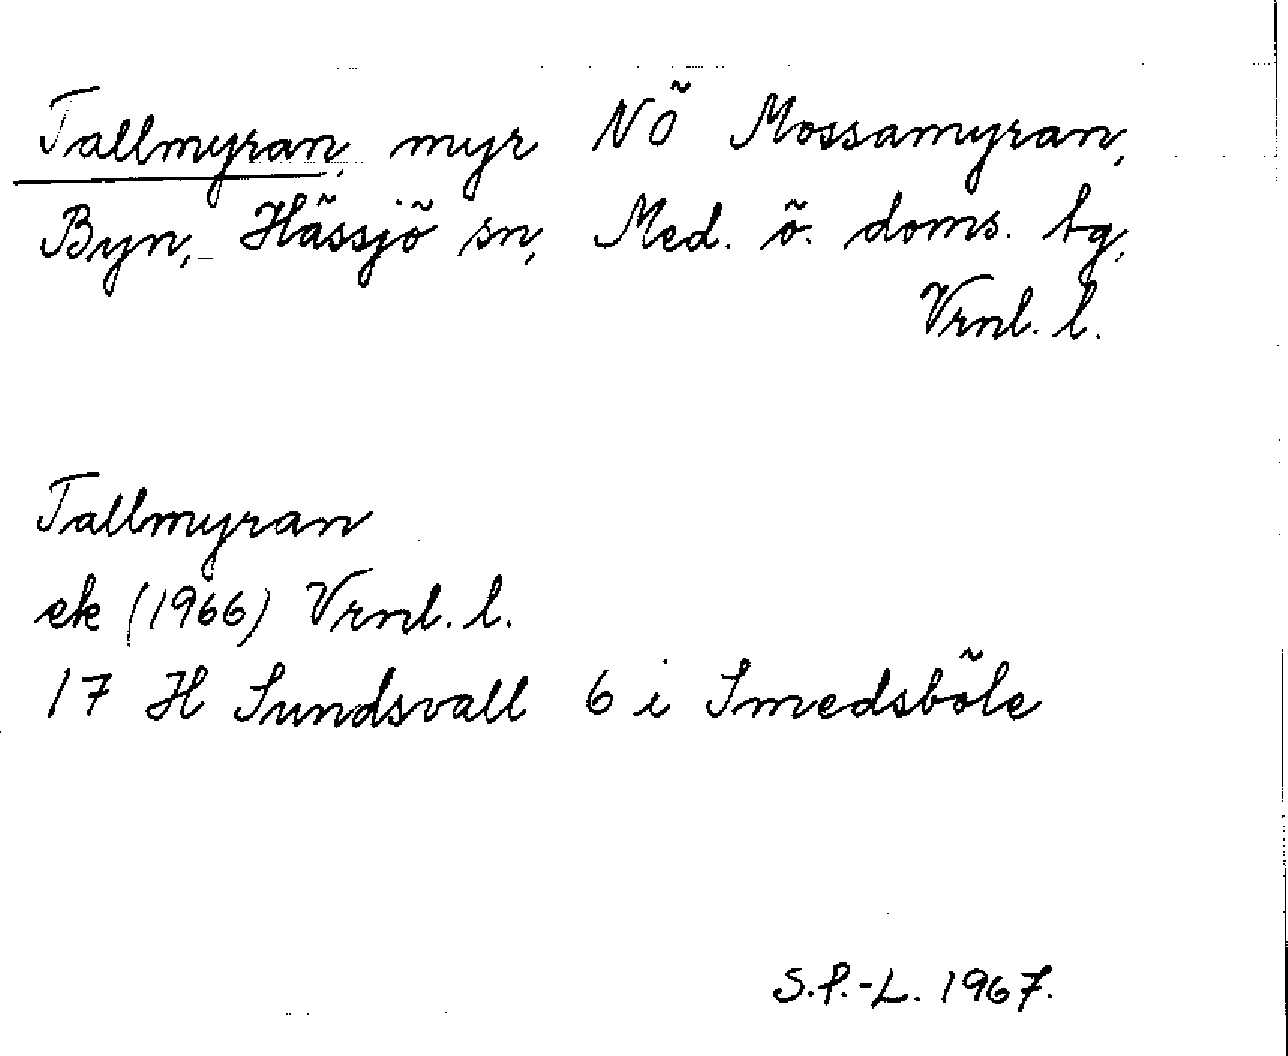 Tallmyran, myr NÖ Mossamyran,
Byn, Hässjö sn, Med. ö. doms. tg,
Vrnl. l.
Tallmyran
ek (1966) Vrnl. l.
17 H Sundsvall 6 i Smedsböle
S.P.-L. 1967.